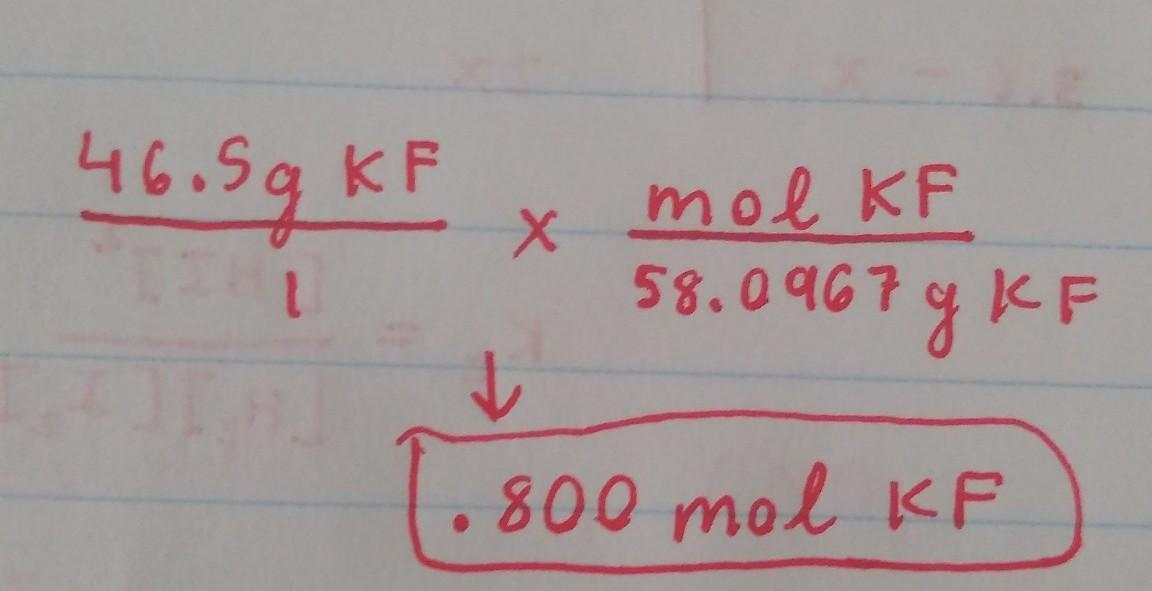 46.5g KF / 1 x mol KF / 58.0967g KF
↓
.800 mol KF